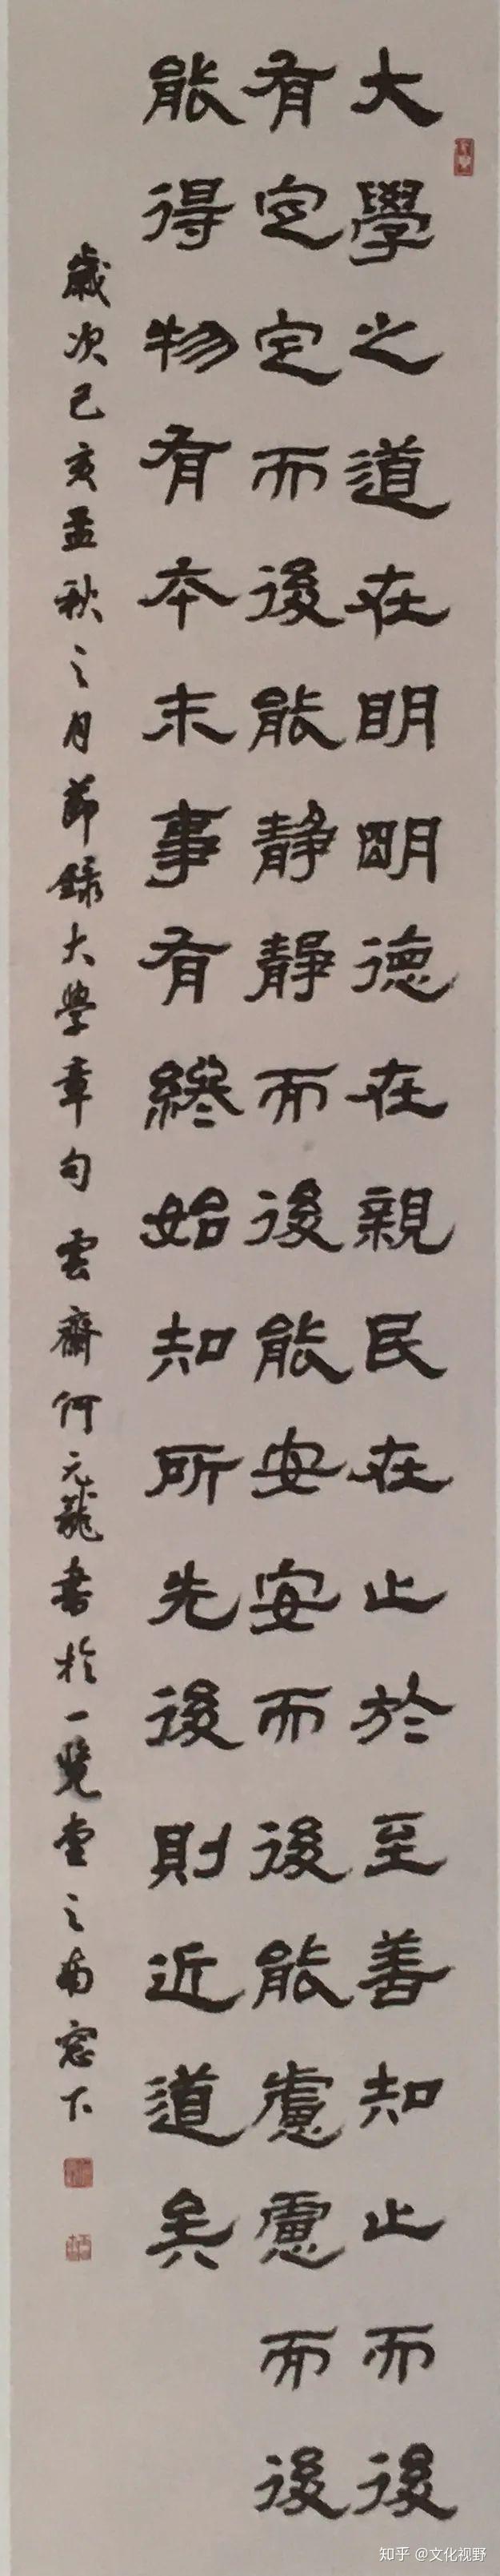 大學之道在明明德在親民在止於至善知止而後
有定定而後能静靜而後能安安而後能慮慮而後
能得物有本末事有終始知所先後則近道矣
歲次己亥孟秋之月節錄大學章句雲齋何元龍書於一覽堂之南窓下
知乎 @文化视野